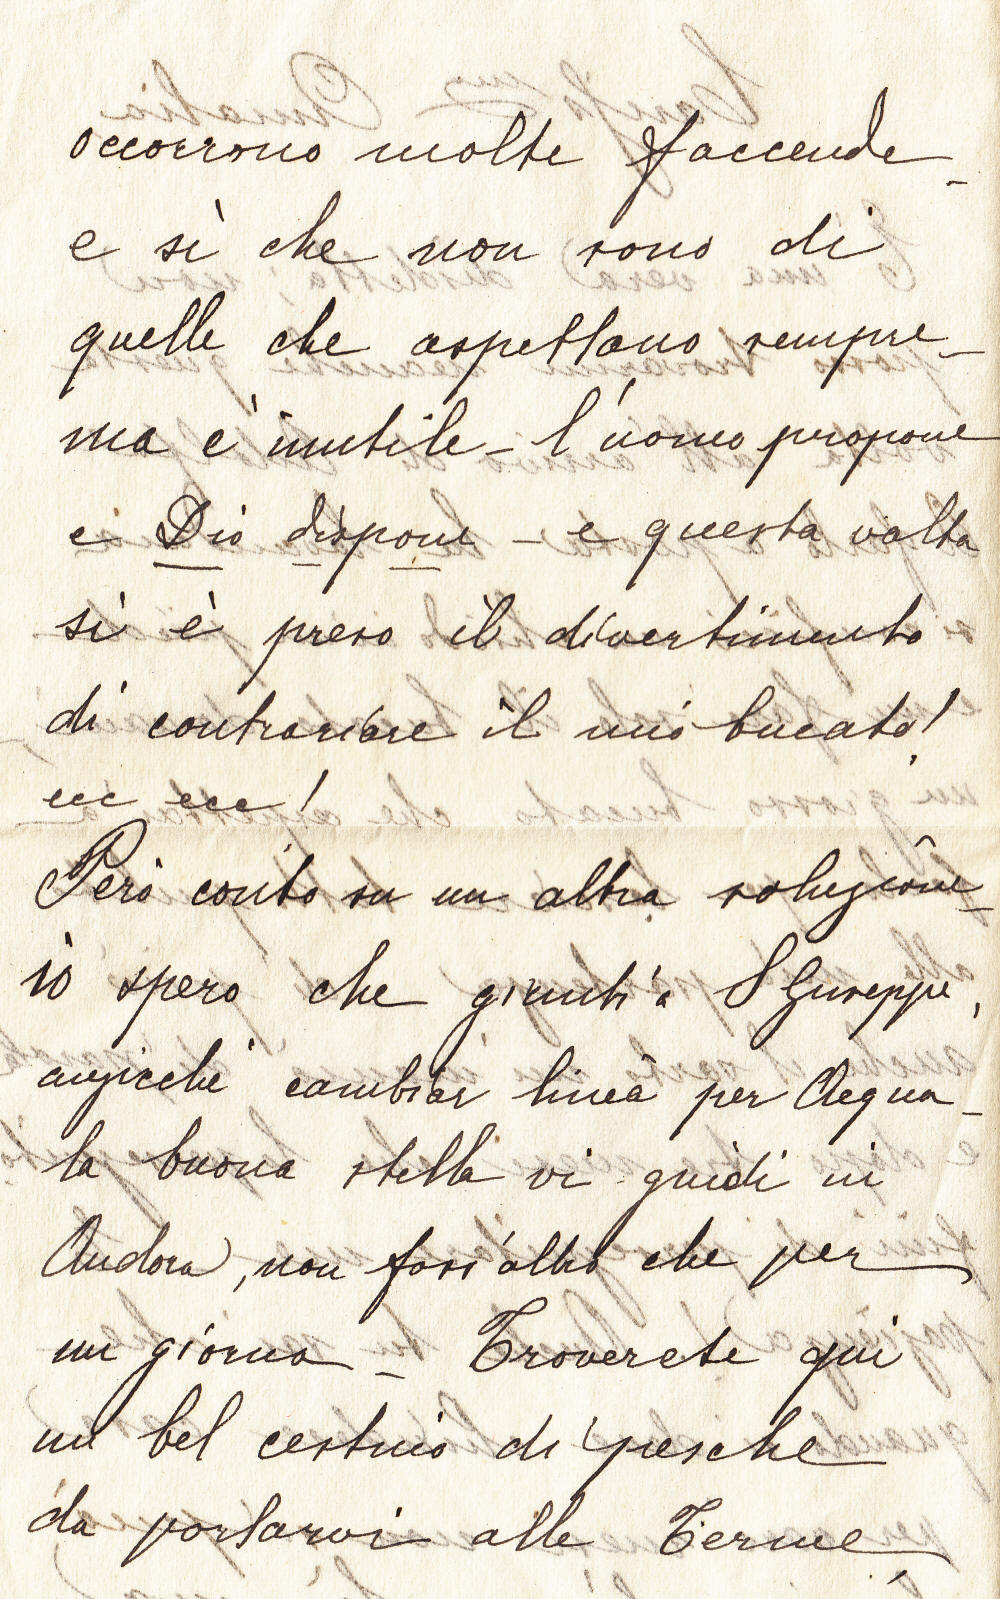 occorrono molte faccende -
e sì che non sono di
quelle che aspettano sempre -
ma è inutile - l'uomo propone
e Dio dispone - e questa volta
si è preso il divertimento
di contrariare il mio bucato!
ecc ecc!
Però conto su un altra soluzione -
io spero che giunti a S Giuseppe,
anzicchè cambiar linea per Acqua -
la buona stella vi guidi in
Andora, non foss'altro che per
un giorno - Troverete qui
un bel cestino di pesche
da portarvi alle Terme,